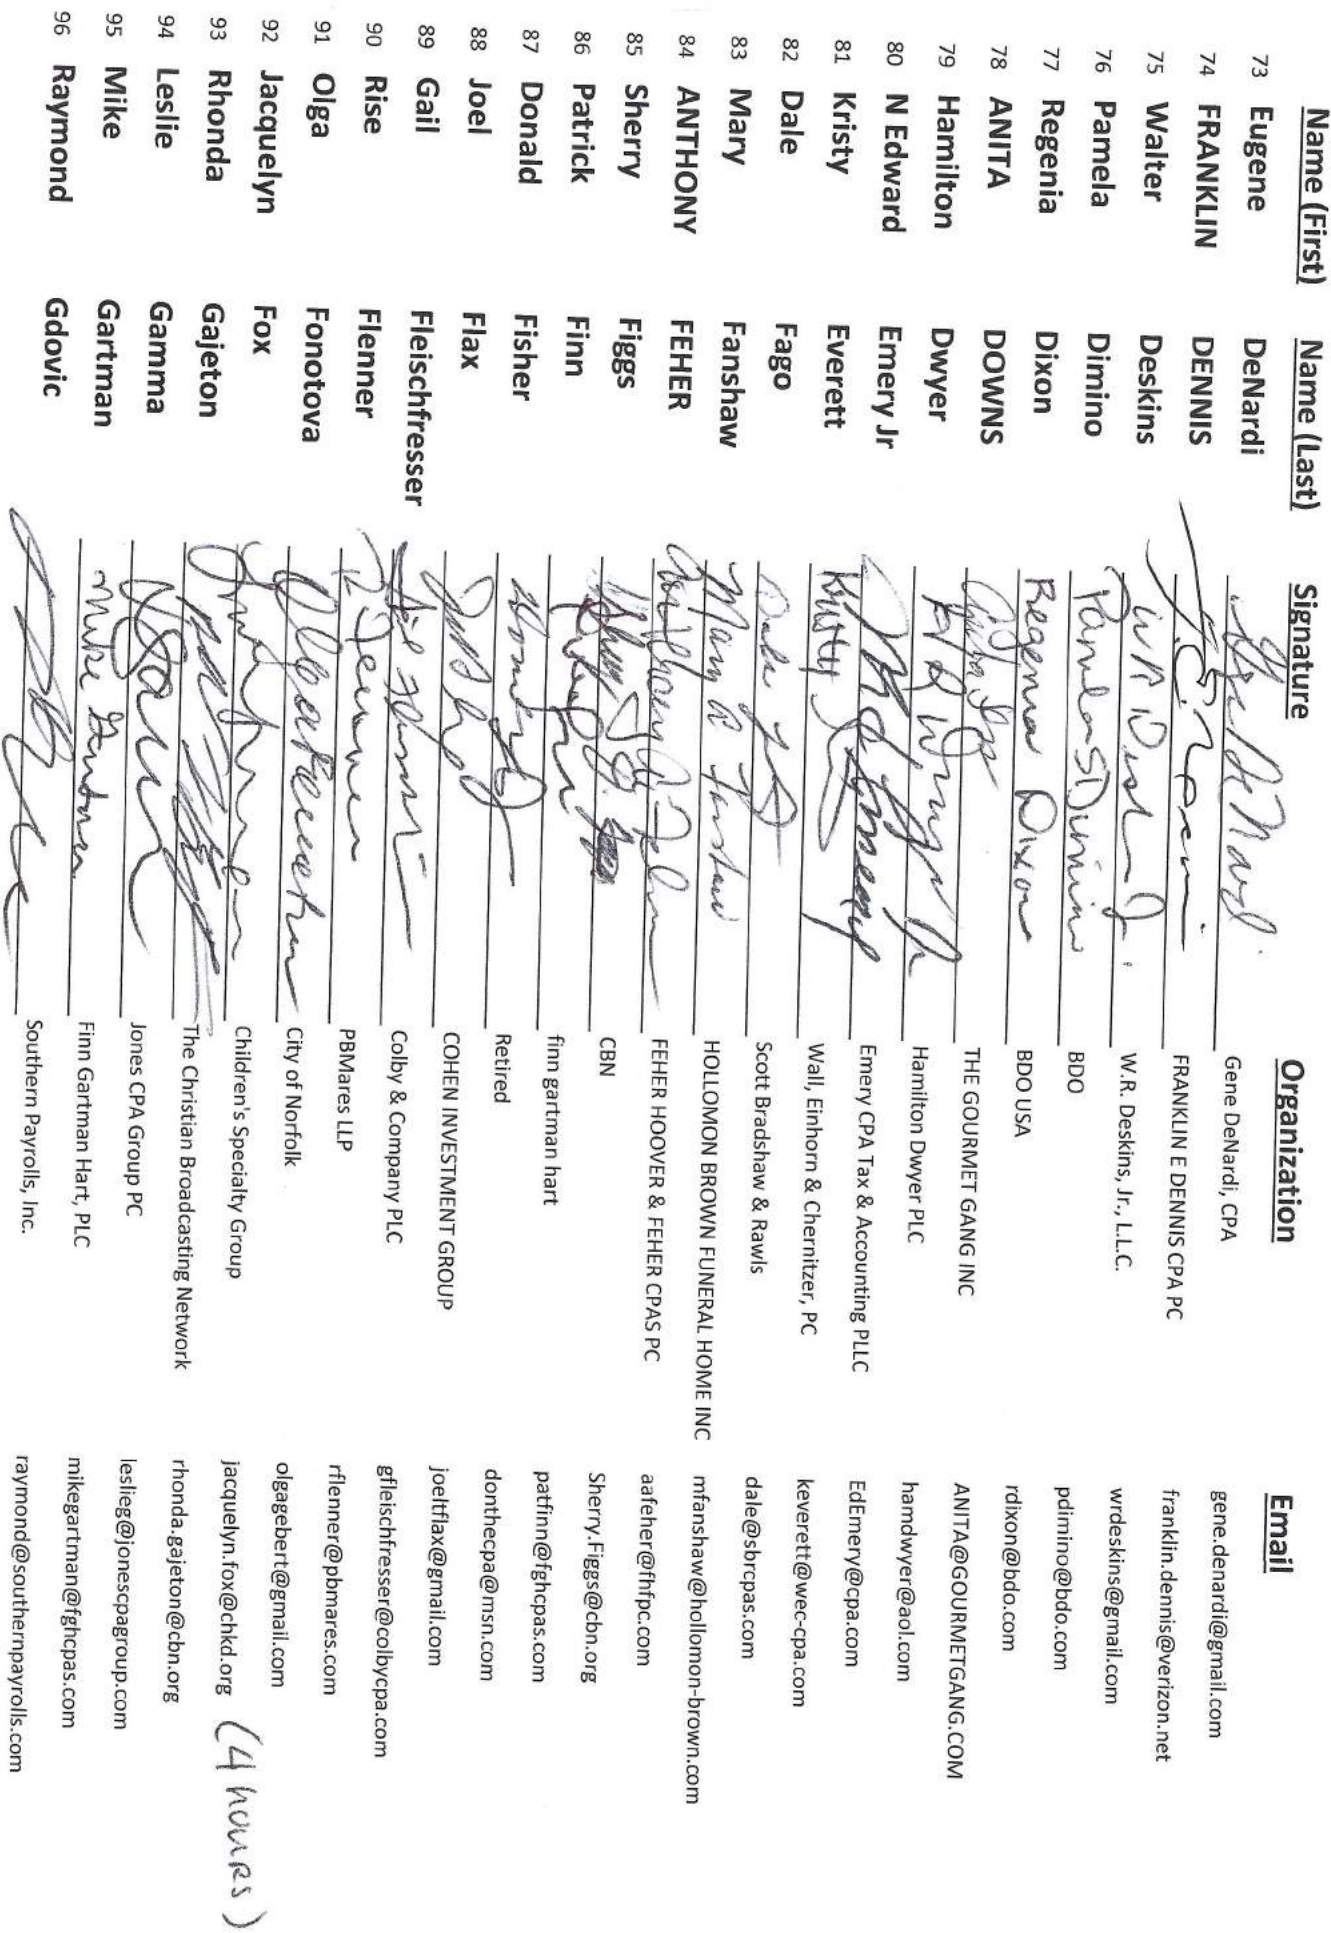 Name (First) Name (Last) Signature Organization Email
73 Eugene DeNardi Gene DeNardi, CPA gene.denardi@gmail.com
74 FRANKLIN DENNIS FRANKLIN E DENNIS CPA PC franklin.dennis@verizon.net
75 Walter Deskins W.R. Deskins, Jr., L.L.C. wrdeskins@gmail.com
76 Pamela Dimino Pamela S Dimino BDO pdimino@bdo.com
77 Regenia Dixon Regenia Dixon BDO USA rdixon@bdo.com
78 ANITA DOWNS THE GOURMET GANG INC ANITA@GOURMETGANG.COM
79 Hamilton Dwyer Hamilton Dwyer PLC hamdwyer@aol.com
80 N Edward Emery Jr Emery CPA Tax & Accounting PLLC EdEmery@cpa.com
81 Kristy Everett Kristy Wall, Einhorn & Chernitzer, PC keverett@wec-cpa.com
82 Dale Fago Dale Scott Bradshaw & Rawls dale@sbrcpas.com
83 Mary Fanshaw Mary a Fanshaw HOLLOMON BROWN FUNERAL HOME INC mfanshaw@hollomon-brown.com
84 ANTHONY FEHER Anthony A. Feher FEHER HOOVER & FEHER CPAS PC aafeher@fhfpc.com
85 Sherry Figgs CBN Sherry.Figgs@cbn.org
86 Patrick Finn finn gartman hart patfinn@fghcpas.com
87 Donald Fisher Retired donthecpa@msn.com
88 Joel Flax COHEN INVESTMENT GROUP joeltflax@gmail.com
89 Gail Fleischfresser Colby & Company PLC gfleischfresser@colbycpa.com
90 Rise Flenner PBMares LLP rflenner@pbmares.com
91 Olga Fonotova City of Norfolk olgagebert@gmail.com
92 Jacquelyn Fox Children's Specialty Group jacquelyn.fox@chkd.org (4 HOURS)
93 Rhonda Gajeton The Christian Broadcasting Network rhonda.gajeton@cbn.org
94 Leslie Gamma Jones CPA Group PC leslieg@jonescpagroup.com
95 Mike Gartman Mike Gartman Finn Gartman Hart, PLC mikegartman@fghcpas.com
96 Raymond Gdovic Southern Payrolls, Inc. raymond@southernpayrolls.com